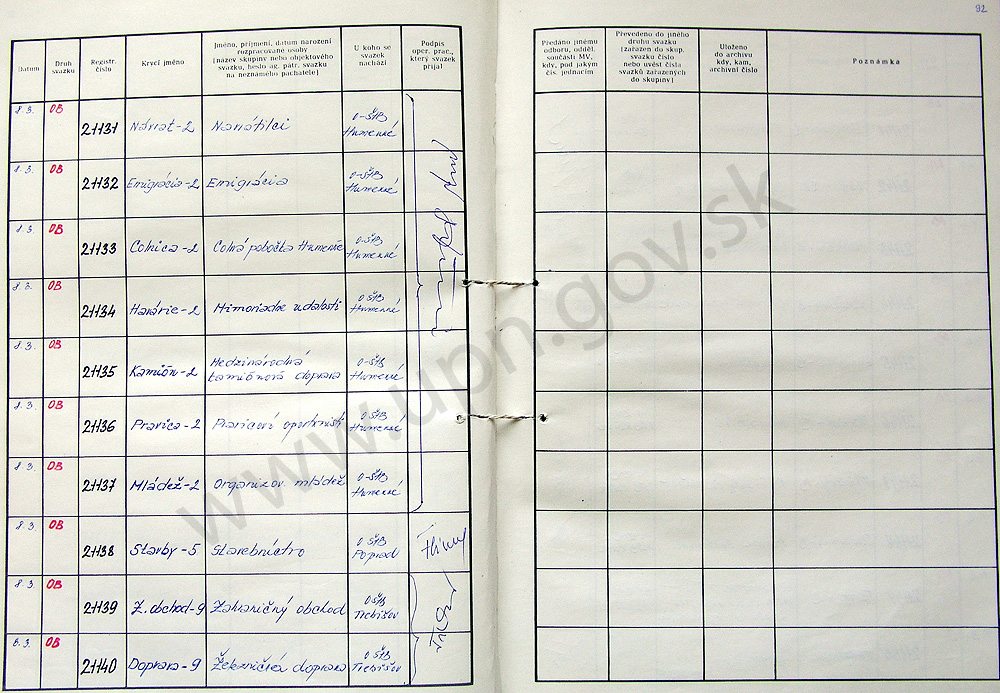 92
Datum
Druh
svazku
Registr.
číslo
Krycí jméno
Jméno, příjmení, datum narození
rozpracované osoby
(název skupiny nebo objektového
svazku, heslo ag. pátr. svazku
na neznámého pachatele)
U koho se
svazek
nachází
Podpis
oper. prac.,
který svazek
přijal
Předáno jinému
odboru, odděl.
součásti MV,
kdy, pod jakým
čís. jednacím
Převedeno do jiného
druhu svazku
(zařazen do skup.
svazku číslo
nebo uvést čísla
svazků zařazených
do skupiny)
Uloženo
do archivu
kdy, kam,
archivní číslo
Poznámka
8.3. OB 21131 Návrat-2 Navrátilci O-ŠtB
Humenné
8.3. OB 21132 Emigrácia-2 Emigrácia O-ŠtB
Humenné
8.3. OB 21133 Colnica-2 Colná pobočka Humenné O-ŠtB
Humenné
8.3. OB 21134 Havárie-2 Mimoriadne udalosti O-ŠtB
Humenné
8.3. OB 21135 Kamión-2 Medzinárodná
kamiónová doprava O-ŠtB
Humenné
8.3. OB 21136 Pravica-2 Pravicoví oportunisti O-ŠtB
Humenné
8.3. OB 21137 Mládež-2 Organizov. mládež O-ŠtB
Humenné
8.3. OB 21138 Stavby-5 Stavebníctvo O ŠtB
Poprad
8.3. OB 21139 Z.obchod-9 Zahraničný obchod O ŠtB
Trebišov
8.3. OB 21140 Doprava-9 Železničná doprava O ŠtB
Trebišov
www.upn.gov.sk